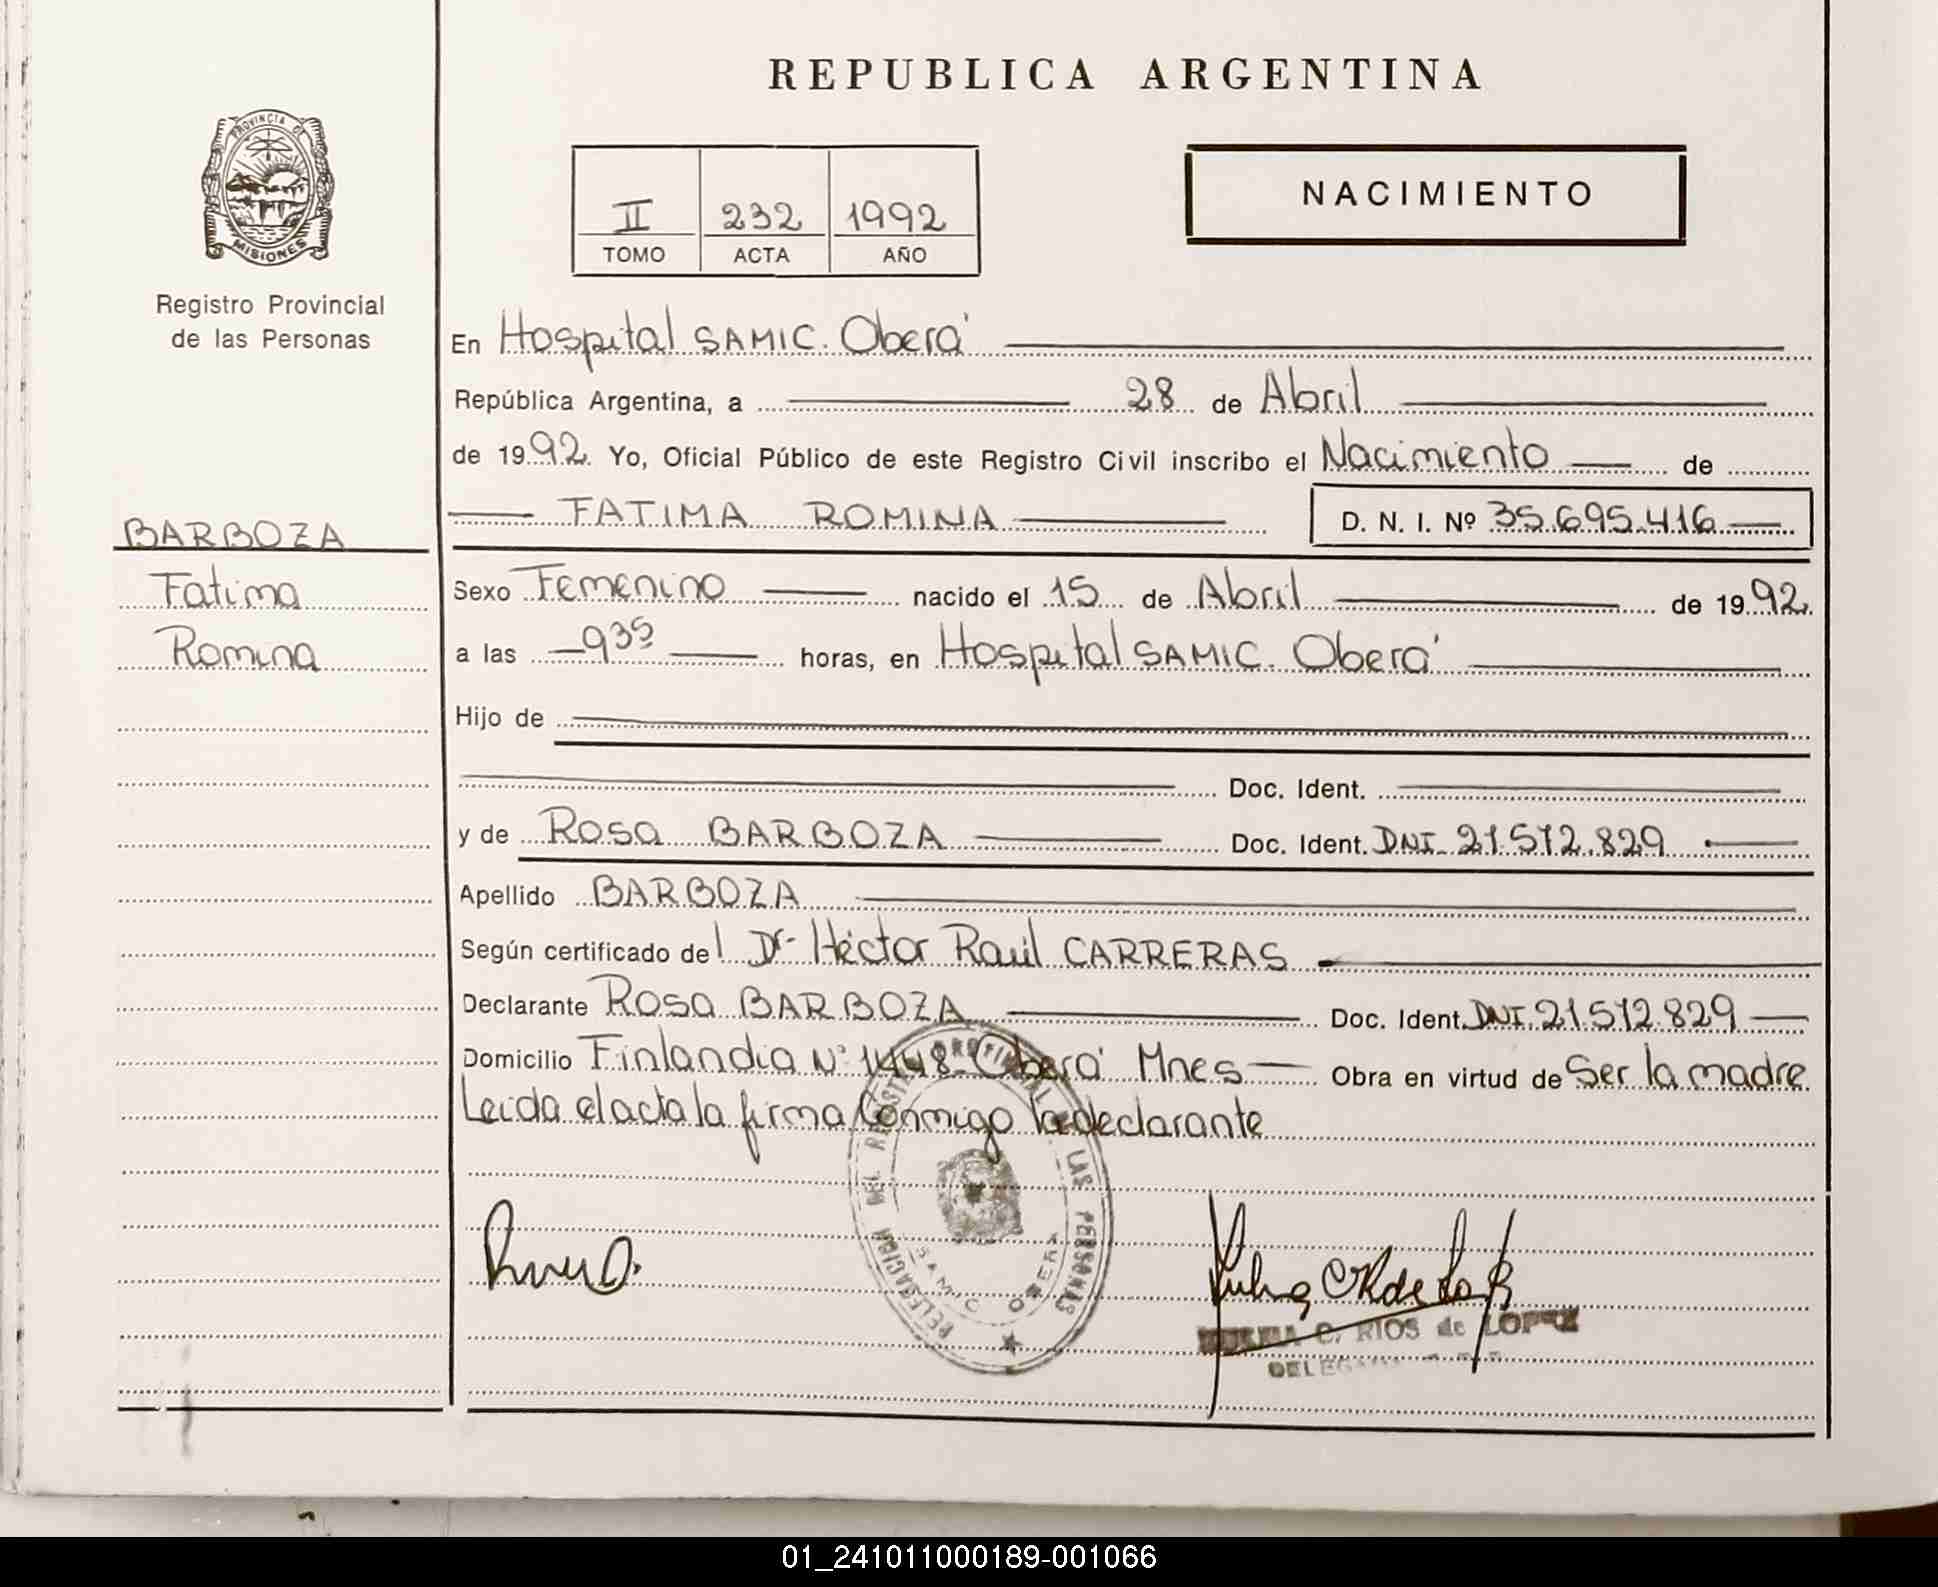 REPUBLICA ARGENTINA
PROVINCIA DE
MISIONES
Registro Provincial
de las Personas
II 232 1992
TOMO ACTA AÑO
NACIMIENTO
En Hospital SAMIC. Oberá
República Argentina, a 28 de Abril
de 1992. Yo, Oficial Público de este Registro Civil inscribo el Nacimiento de
FATIMA ROMINA D. N. I. Nº 35.695.416
BARBOZA
Fatima
Romina
Sexo Femenino nacido el 15 de Abril de 1992.
a las 9 35 horas, en Hospital SAMIC. Oberá
Hijo de
Doc. Ident.
y de Rosa BARBOZA Doc. Ident. DNI 21.572.829
Apellido BARBOZA
Según certificado del Dr. Héctor Raúl CARRERAS
Declarante Rosa BARBOZA Doc. Ident. DNI 21.572.829
Domicilio Finlandia Nº 1448- Oberá Mnes Obra en virtud de Ser la madre
Leida el acta la firma Conmigo la declarante
DELEGACION DEL REGISTRO PROVINCIAL LAS PERSONAS
SAMIC OBERA
C. RIOS de LOPEZ
01_241011000189-001066